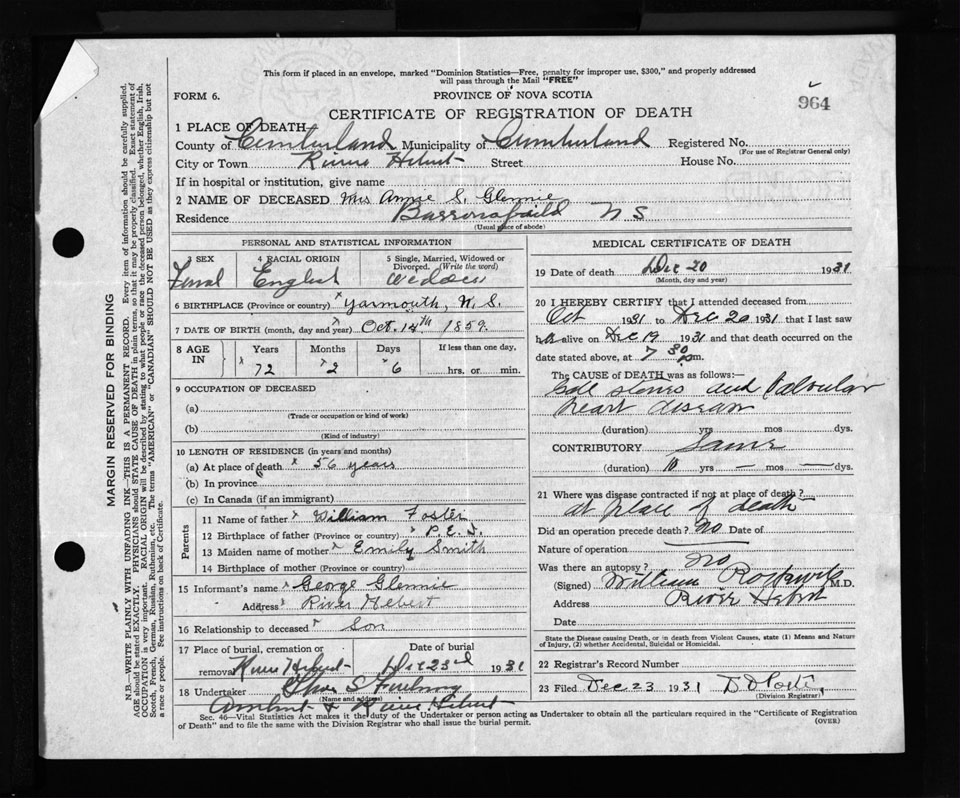 This form if placed in an envelope, marked "Dominion Statistics—Free, penalty for improper use, $300," and properly addressed
will pass through the Mail "FREE"
FORM 6.
PROVINCE OF NOVA SCOTIA
964
CERTIFICATE OF REGISTRATION OF DEATH
1 PLACE OF DEATH
County of Cumberland Municipality of Cumberland Registered No.
(For use of Registrar General only)
City or Town River Hebert Street House No.
If in hospital or institution, give name
2 NAME OF DECEASED Mrs Annie S. Glennie
Residence Barronsfield N S
(Usual place of abode)
PERSONAL AND STATISTICAL INFORMATION
3 SEX 4 RACIAL ORIGIN 5 Single, Married, Widowed or Divorced. (Write the word)
Femal English Widow
6 BIRTHPLACE (Province or country) Yarmouth, N. S.
7 DATE OF BIRTH (month, day and year) Oct. 14th 1859.
8 AGE IN Years Months Days If less than one day.
72 2 6 hrs. or min.
9 OCCUPATION OF DECEASED
(a)
(Trade or occupation or kind of work)
(b)
(Kind of industry)
10 LENGTH OF RESIDENCE (in years and months)
(a) At place of death 56 years
(b) In province
(c) In Canada (if an immigrant)
Parents
11 Name of father William Foster
12 Birthplace of father (Province or country) P.E.I.
13 Maiden name of mother Emily Smith
14 Birthplace of mother (Province or country)
15 Informant's name George Glennie
Address River Hebert
16 Relationship to deceased Son
17 Place of burial, cremation or removal River Hebert
Date of burial Dec 23rd 1931
18 Undertaker
(Name and address)
Amherst & River Hebert
MEDICAL CERTIFICATE OF DEATH
19 Date of death Dec 20 1931
(Month, day and year)
20 I HEREBY CERTIFY that I attended deceased from
Oct 1931 to Dec 20 1931 that I last saw
her alive on Dec 19 1931 and that death occurred on the
date stated above, at 7 30 pm.
The CAUSE OF DEATH was as follows:—
Gall stones and Valvular
heart disease
(duration) yrs mos dys.
CONTRIBUTORY Same
(duration) 10 yrs — mos — dys.
21 Where was disease contracted if not at place of death?
at place of death
Did an operation precede death? No Date of
Nature of operation
Was there an autopsy? No
(Signed) William M.D.
Address River Hebert
Date
State the Disease causing Death, or in death from Violent Causes, state (1) Means and Nature
of Injury, (2) whether Accidental, Suicidal or Homicidal.
22 Registrar's Record Number
23 Filed Dec 23 1931
(Division Registrar)
Sec. 46—Vital Statistics Act makes it the duty of the Undertaker or person acting as Undertaker to obtain all the particulars required in the "Certificate of Registration
of Death" and to file the same with the Division Registrar who shall issue the burial permit.
(OVER)
MARGIN RESERVED FOR BINDING
N.B.—WRITE PLAINLY WITH UNFADING INK—THIS IS A PERMANENT RECORD. Every item of information should be carefully supplied.
AGE should be stated EXACTLY. PHYSICIANS should STATE CAUSE OF DEATH in plain terms, so that it may be properly classified. Exact statement of
OCCUPATION is very important. RACIAL ORIGIN will be described by stating to what people or race the deceased person belonged, whether English, Irish,
Scotch, French, German, Russian, Ruthenian, etc. The terms "AMERICAN" or "CANADIAN" SHOULD NOT BE USED as they express citizenship but not
a race or people. See instructions on back of Certificate.